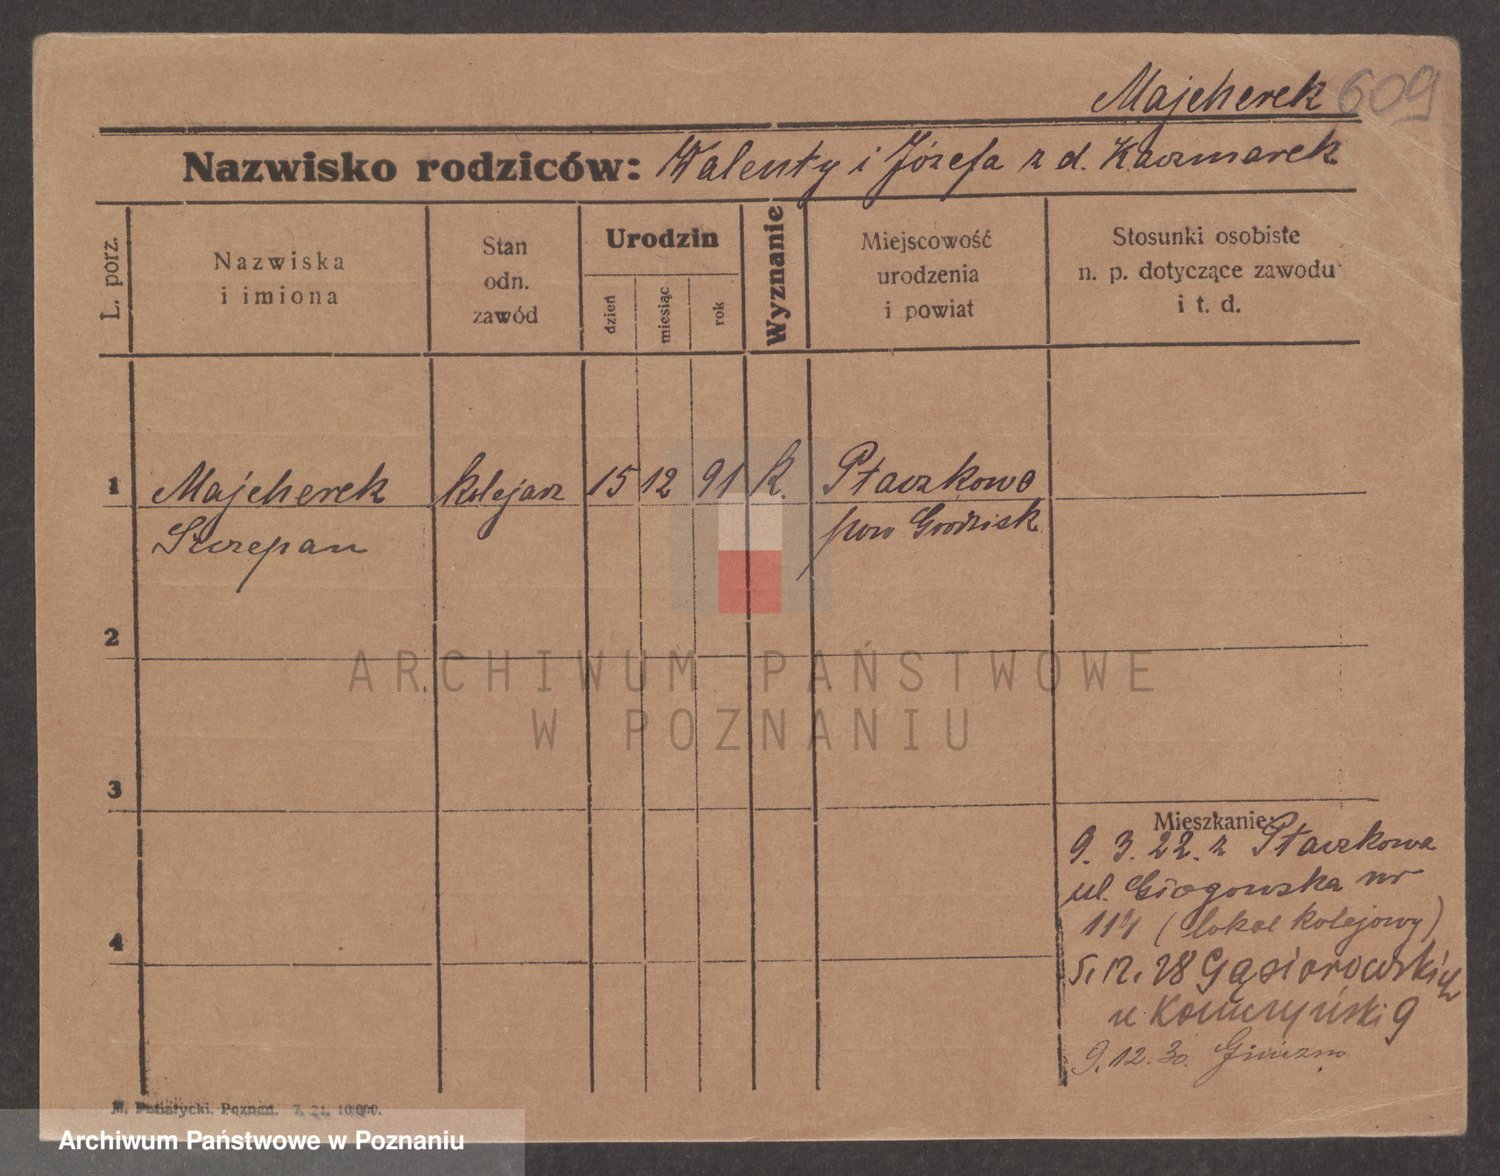 Majcherek 609
Nazwisko rodziców: Walenty i Józefa z d. Kaczmarek
L. porz.
Nazwiska
i imiona
Stan
odn.
zawód
Urodzin
dzień
miesiąc
rok
Wyznanie
Miejscowość
urodzenia
i powiat
Stosunki osobiste
n. p. dotyczące zawodu
i t. d.
1 Majcherek kolejarz 15 12 91 K. Ptaczkowo
Szczepan pow Grodzisk
2
ARCHIWUM PAŃSTWOWE
W POZNANIU
3
Mieszkanie:
9. 3. 22. z Ptaczkowa
ul. Głogowska nr
114 (lokal kolejowy)
5. 12. 28 Gąsiorowskich
u 9
4
9. 12. 30. Gniezno
Poznań. 7. 21. 10000.
Archiwum Państwowe w Poznaniu